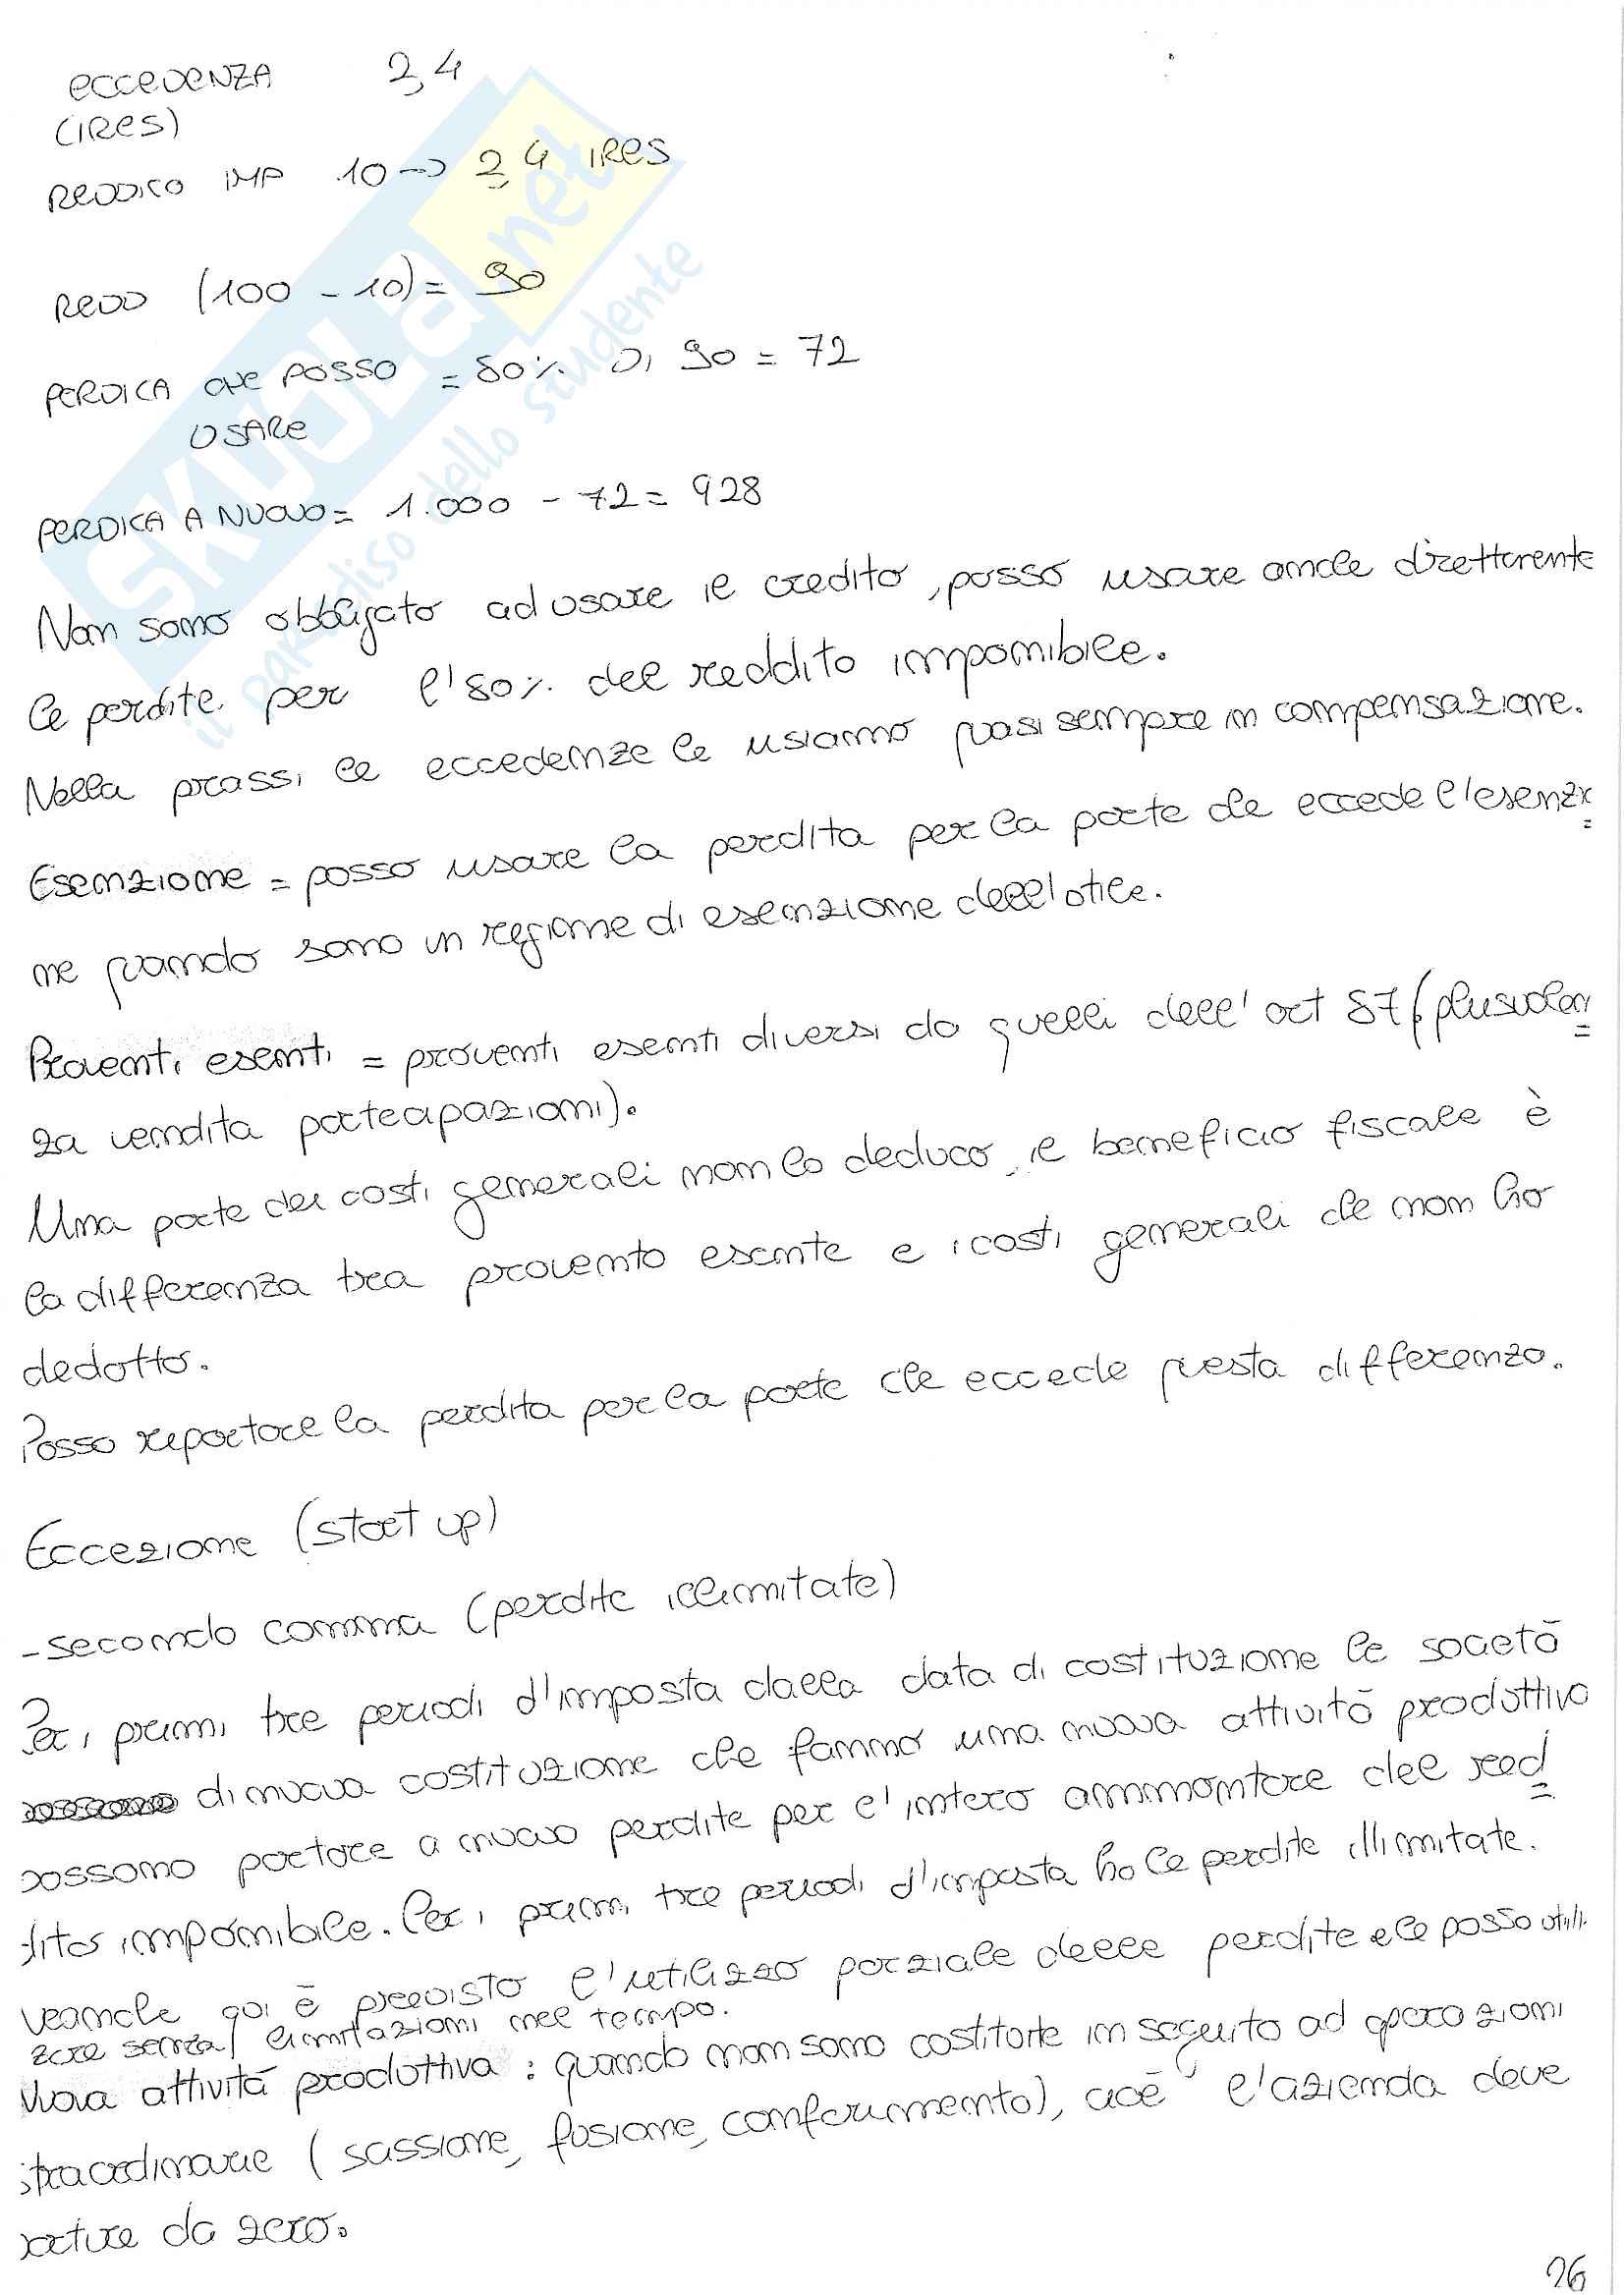 ECCEDENZA 2,4
(IRES)
REDDITO IMP 10 -> 2,4 IRES
REDD (100 - 10) = 90
PERDITA CHE POSSO = 80% DI 90 = 72
USARE
PERDITA A NUOVO = 1.000 - 72 = 928
Non sono obbligato ad usare il credito, posso usare anche direttamente
le perdite per l'80% del reddito imponibile.
Nella prassi le eccedenze le usiamo quasi sempre in compensazione.
Esenzione = posso usare la perdita per la parte che eccede l'esenzio
ne quando sono in regime di esenzione dell'utile.
Proventi esenti = proventi esenti diversi da quelli dell'art 87 (plusvalen
za vendita partecipazioni).
Una parte dei costi generali non lo deduco, il beneficio fiscale è
la differenza tra provento esente e i costi generali che non ho
dedotto.
Posso riportare la perdita per la parte che eccede questa differenza.
Eccezione (start up)
- secondo comma (perdite illimitate)
Per i primi tre periodi d'imposta dalla data di costituzione le società
di nuova costituzione che fanno una nuova attività produttiva
possono portare a nuovo perdite per l'intero ammontare del red
dito imponibile. Per i primi tre periodi d'imposta ho le perdite illimitate.
Neanche qui è previsto l'utilizzo parziale delle perdite e le posso utiliz
zare senza limitazioni nel tempo.
Nuova attività produttiva: quando non sono costituite in seguito ad operazioni
straordinarie (scissione, fusione, conferimento), cioè l'azienda deve
partire da zero.
26
SKUOLA.net
il paradiso dello studente